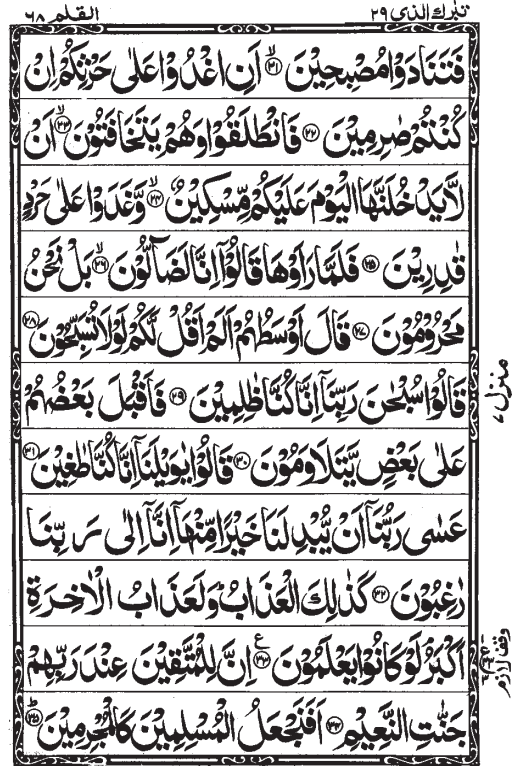 تبٰرك الذی ٢٩
القلم ٦٨
فَتَنَادَوۡا مُصۡبِحِيۡنَ ۙ‏﴿۲۱﴾ اَنِ اغۡدُوۡا عَلٰى حَرۡثِكُمۡ اِنۡ
كُنۡتُمۡ صٰرِمِيۡنَ‏﴿۲۲﴾ فَانۡطَلَقُوۡا وَهُمۡ يَتَخَافَتُوۡنَۙ‏﴿۲۳﴾ اَنۡ
لَّا يَدۡخُلَنَّهَا الۡيَوۡمَ عَلَيۡكُمۡ مِّسۡكِيۡنٌۙ‏﴿۲۴﴾ وَّغَدَوۡا عَلٰى حَرۡدٍ
قٰدِرِيۡنَ‏﴿۲۵﴾ فَلَمَّا رَاَوۡهَا قَالُوۡۤا اِنَّا لَضَآلُّوۡنَۙ‏﴿۲۶﴾ بَلۡ نَحۡنُ
مَحۡرُوۡمُوۡنَ‏﴿۲۷﴾ قَالَ اَوۡسَطُهُمۡ اَلَمۡ اَقُلْ لَّكُمۡ لَوۡلَا تُسَبِّحُوۡنَ‏﴿۲۸﴾
قَالُوۡا سُبۡحٰنَ رَبِّنَاۤ اِنَّا كُنَّا ظٰلِمِيۡنَ‏﴿۲۹﴾ فَاَقۡبَلَ بَعۡضُهُمۡ
عَلٰى بَعۡضٍ يَّتَلَاوَمُوۡنَ‏﴿۳۰﴾ قَالُوۡا يٰوَيۡلَنَاۤ اِنَّا كُنَّا طٰغِيۡنَ‏﴿۳۱﴾
عَسٰى رَبُّنَاۤ اَنۡ يُّبۡدِلَنَا خَيۡرًا مِّنۡهَاۤ اِنَّاۤ اِلٰى رَبِّنَا
رٰغِبُوۡنَ‏﴿۳۲﴾ كَذٰلِكَ الۡعَذَابُ‌ؕ وَلَعَذَابُ الۡاٰخِرَةِ
اَكۡبَرُ‌ۘ لَوۡ كَانُوۡا يَعۡلَمُوۡنَ‏﴿۳۳﴾ ع اِنَّ لِلۡمُتَّقِيۡنَ عِنۡدَ رَبِّهِمۡ
جَنّٰتِ النَّعِيۡمِ‏﴿۳۴﴾ اَفَنَجۡعَلُ الۡمُسۡلِمِيۡنَ كَالۡمُجۡرِمِيۡنَؕ‏﴿۳۵﴾
منزل ٧
وقف لازم